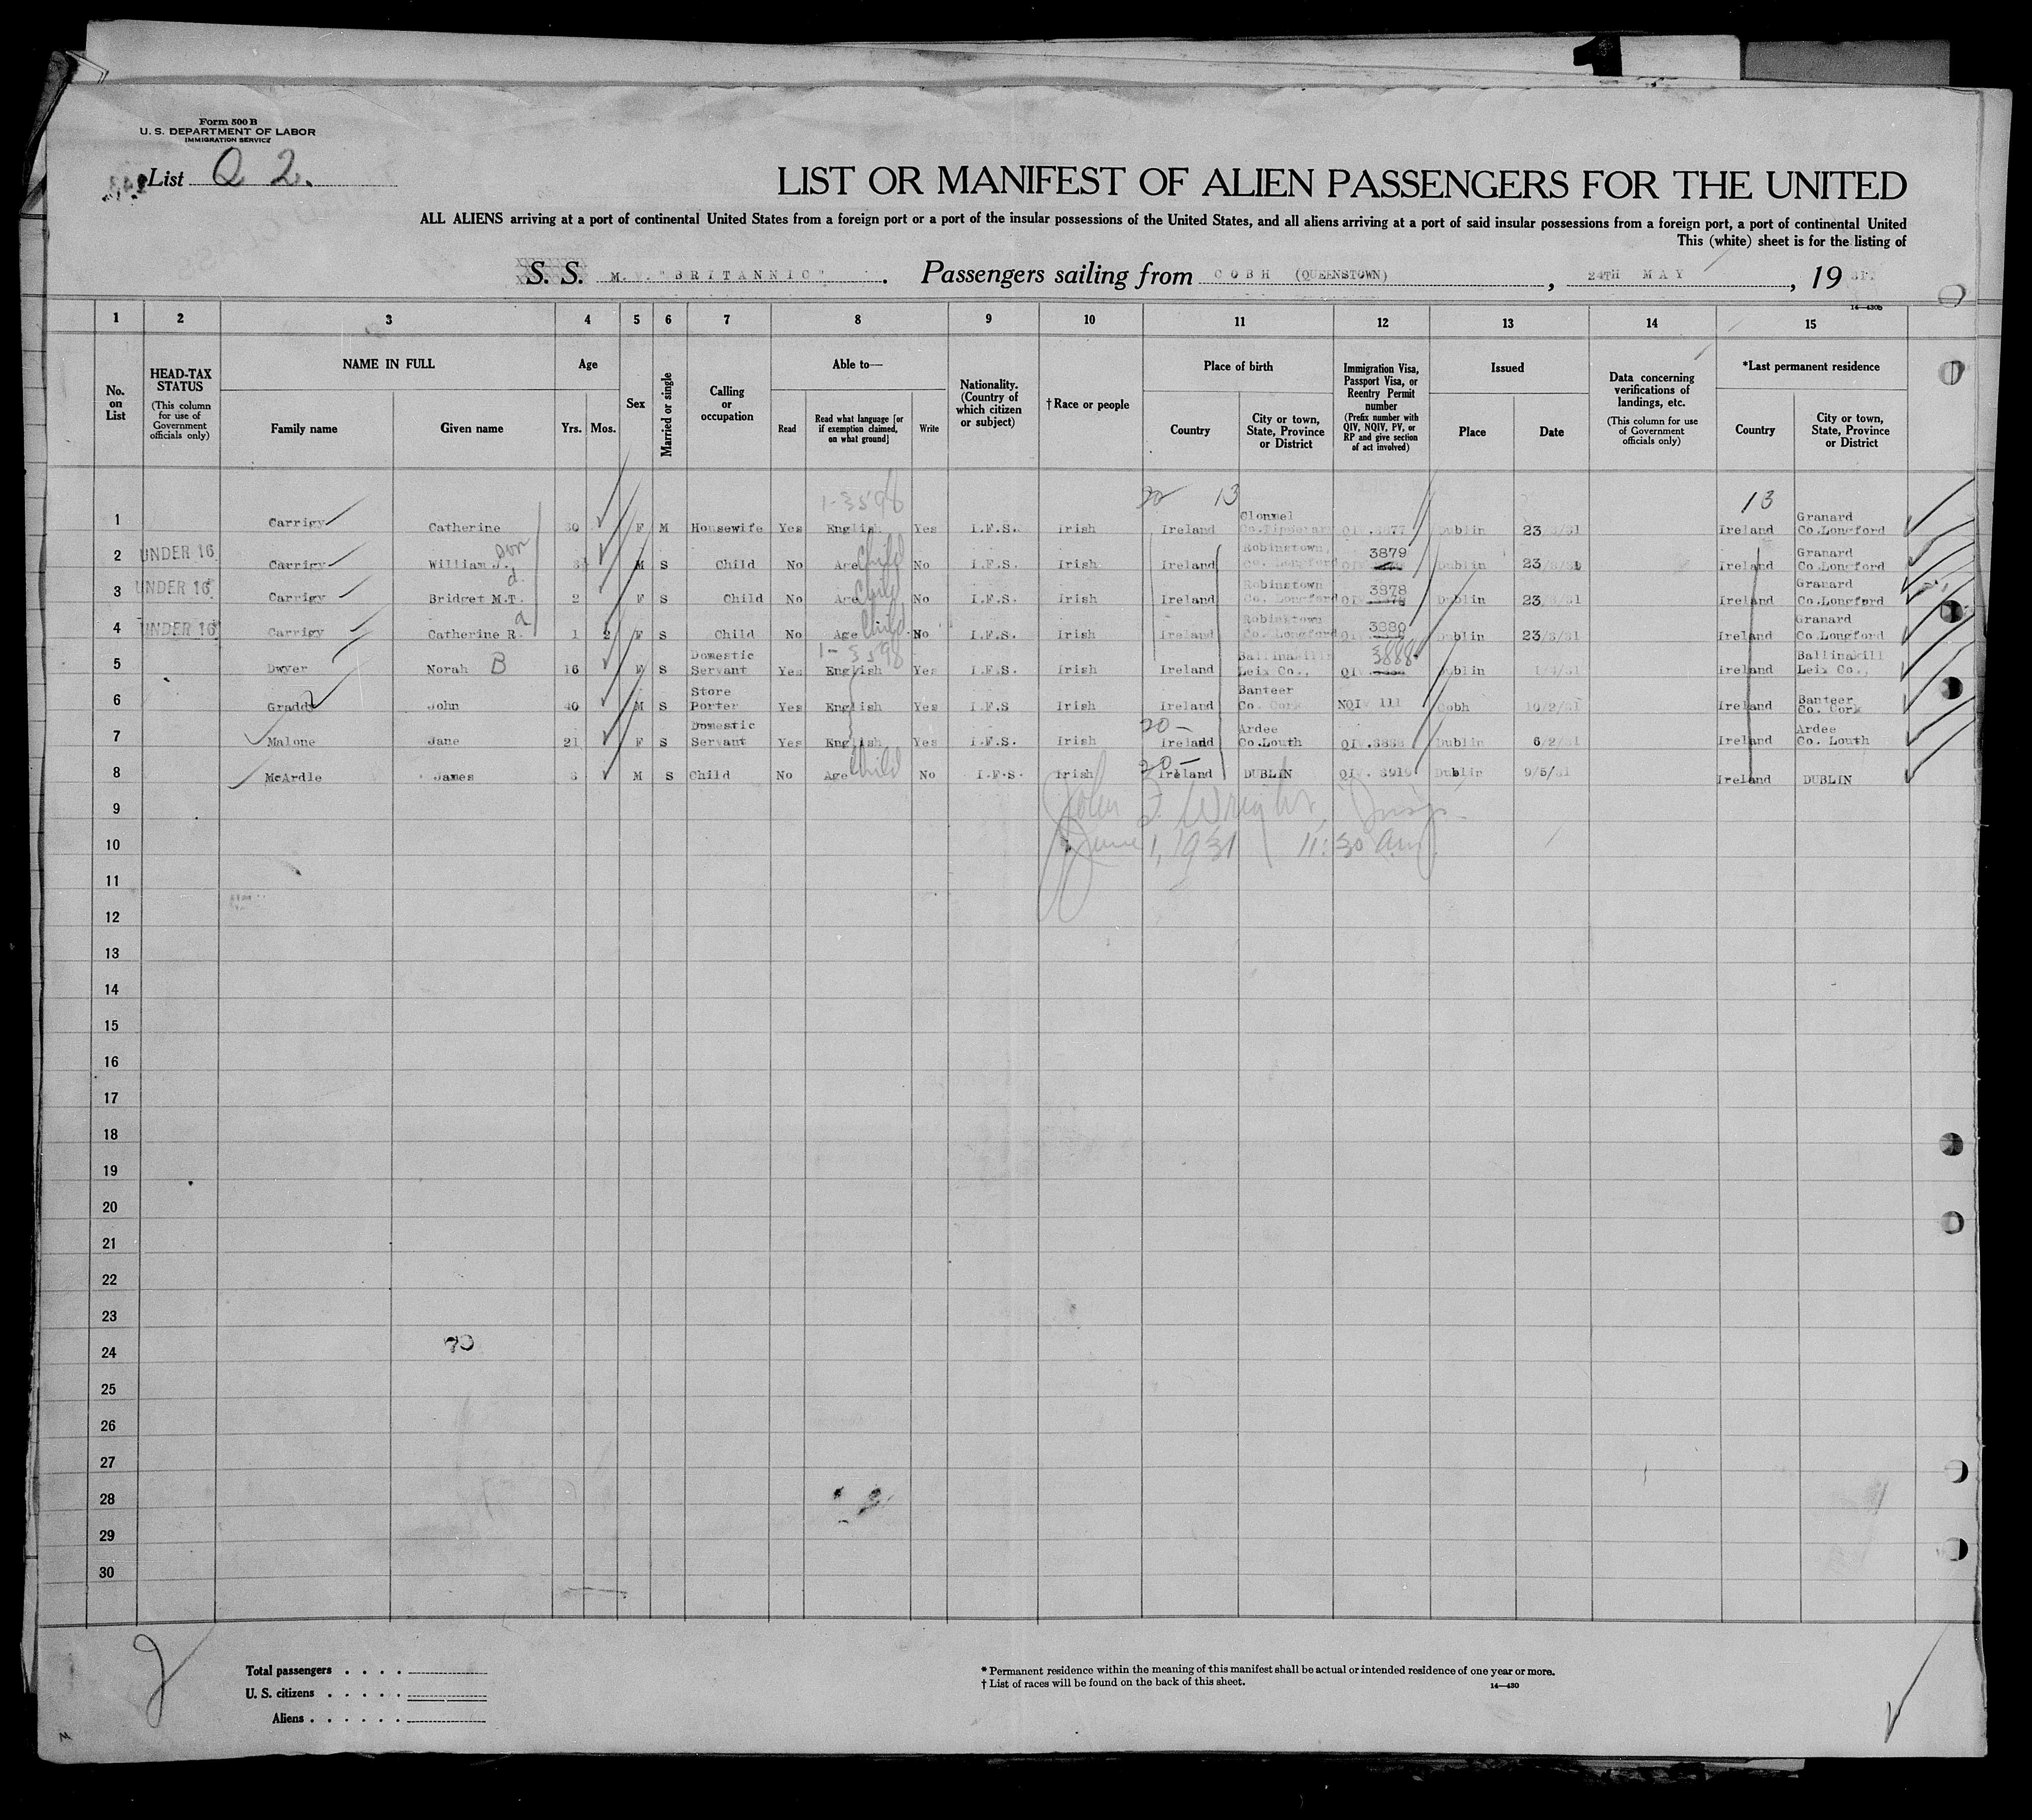 Form 500 B
U. S. DEPARTMENT OF LABOR
IMMIGRATION SERVICE
List Q 2.
LIST OR MANIFEST OF ALIEN PASSENGERS FOR THE UNITED
ALL ALIENS arriving at a port of continental United States from a foreign port or a port of the insular possessions of the United States, and all aliens arriving at a port of said insular possessions from a foreign port, a port of continental United
This (white) sheet is for the listing of
S. S. M. V. "BRITANNIC". Passengers sailing from COBH (QUEENSTOWN), 24TH MAY, 1931.
14—430b
1 2 3 4 5 6 7 8 9 10 11 12 13 14 15
No. on List
HEAD-TAX STATUS (This column for use of Government officials only)
NAME IN FULL
Family name Given name
Age
Yrs. Mos.
Sex
Married or single
Calling or occupation
Able to—
Read Read what language [or if exemption claimed, on what ground] Write
Nationality. (Country of which citizen or subject)
† Race or people
Place of birth
Country City or town, State, Province or District
Immigration Visa, Passport Visa, or Reentry Permit number (Prefix number with QIV, NQIV, PV, or RP and give section of act involved)
Issued
Place Date
Data concerning verifications of landings, etc. (This column for use of Government officials only)
*Last permanent residence
Country City or town, State, Province or District
1-3598 20 13 13
1 Carrigy Catherine 30 F M Housewife Yes English Yes I.F.S. Irish Ireland Clonmel Co.Tipperary QIV.3877 Dublin 23/3/31 Ireland Granard Co.Longford
2 UNDER 16 Carrigy William J. son 3 M S Child No Age Child No I.F.S. Irish Ireland Robinstown, Co. Longford QIV 3879 Dublin 23/3/31 Ireland Granard Co.Longford
3 UNDER 16 Carrigy Bridget M.T. d. 2 F S Child No Age Child No I.F.S. Irish Ireland Robinstown Co. Longford QIV 3878 Dublin 23/3/31 Ireland Granard Co.Longford
4 UNDER 16 Carrigy Catherine R. d 1 2 F S Child No Age Child No I.F.S. Irish Ireland Robinstown Co. Longford QIV 3880 Dublin 23/3/31 Ireland Granard Co.Longford
1-3598
5 Dwyer Norah B 16 F S Domestic Servant Yes English Yes I.F.S. Irish Ireland Ballinakill Leix Co., QIV 3888 Dublin 1/4/31 Ireland Ballinakill Leix Co.,
6 Graddy John 40 M S Store Porter Yes English Yes I.F.S Irish Ireland Banteer Co. Cork NQIV 111 Cobh 10/2/31 Ireland Banteer Co. Cork
20-
7 Malone Jane 21 F S Domestic Servant Yes English Yes I.F.S. Irish Ireland Ardee Co.Louth QIV.3838 Dublin 6/2/31 Ireland Ardee Co. Louth
20-
8 McArdle James 3 M S Child No Age Child No I.F.S. Irish Ireland DUBLIN QIV. 3919 Dublin 9/5/31 Ireland DUBLIN
John F. Wright, Insp.
9
June 1, 1931 11:30 am.
10
11
12
13
14
15
16
17
18
19
20
21
22
23
24
25
26
27
28
29
30
Total passengers . . . .
U. S. citizens . . . . .
Aliens . . . . . .
* Permanent residence within the meaning of this manifest shall be actual or intended residence of one year or more.
† List of races will be found on the back of this sheet.
14—430